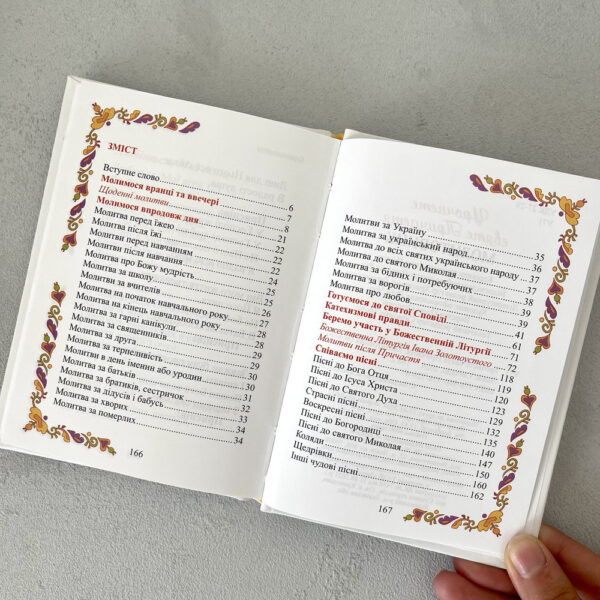 ЗМІСТ
Вступне слово 6
Молимося вранці та ввечері 7
Щоденні молитви 8
Молимося впродовж дня 21
Молитва перед їжею
Молитва після їжі
Молитви перед навчанням
Молитви після навчання
Молитва про Божу мудрість
Молитва за школу
Молитва за вчителів
Молитва на початок навчального року
Молитва на кінець навчального року 28
Молитва на гарні канікули 29
Молитва за священників 29
Молитва за друга 29
Молитва за терпеливість 30
Молитви в день імені або уродин 30
Молитва за батьків 31
Молитва за братиків, сестричок 32
Молитва за дідусів і бабусь
Молитва за хворих 34
Молитва за померлих 34
166
Молитви за Україну 35
Молитва за український народ 36
Молитва до всіх святих українського народу 37
Молитва до святого Миколая 37
Молитва за бідних і потребуючих 38
Молитва за ворогів 39
Молитва про любов 39
Готуємося до святої Сповіді 41
Катехизмові правди 61
Беремо участь у Божественній Літургії 71
Божественна Літургія Івана Золотоустого 72
Молитви після Причастя 118
Співаємо пісні 119
Пісні до Бога Отця 120
Пісні до Ісуса Христа 123
Пісні до Святого Духа 129
Страсні пісні 132
Воскресні пісні 135
Пісні до Богородиці 140
Пісні до святого Миколая 147
Коляди 150
Щедрівки 160
Інші чудові пісні 162
167